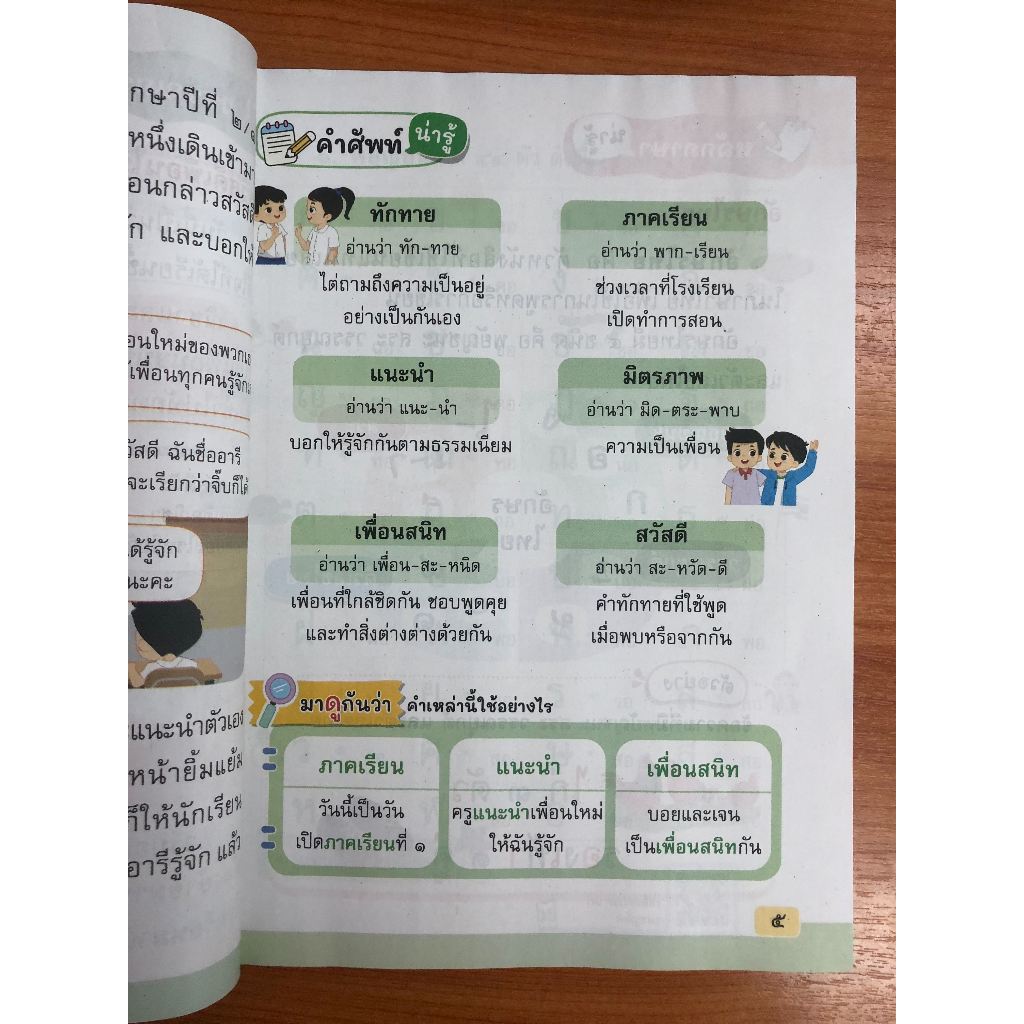 กษาปีที่ ๒/๑
หนึ่งเดินเข้ามา
อนกล่าวสวัสดี
ัก และบอกให้
อนใหม่ของพวกเธอ
้เพื่อนทุกคนรู้จักนะ
วัสดี ฉันชื่ออารี
จะเรียกว่าจิ๊บก็ได้
ได้รู้จัก
นะคะ
แนะนำตัวเอง
หน้ายิ้มแย้ม
ก็ให้นักเรียน
อารีรู้จัก แล้ว
คำศัพท์ น่ารู้
ทักทาย
อ่านว่า ทัก-ทาย
ไต่ถามถึงความเป็นอยู่
อย่างเป็นกันเอง
ภาคเรียน
อ่านว่า พาก-เรียน
ช่วงเวลาที่โรงเรียน
เปิดทำการสอน
แนะนำ
อ่านว่า แนะ-นำ
บอกให้รู้จักกันตามธรรมเนียม
มิตรภาพ
อ่านว่า มิด-ตระ-พาบ
ความเป็นเพื่อน
เพื่อนสนิท
อ่านว่า เพื่อน-สะ-หนิด
เพื่อนที่ใกล้ชิดกัน ชอบพูดคุย
และทำสิ่งต่างต่างด้วยกัน
สวัสดี
อ่านว่า สะ-หวัด-ดี
คำทักทายที่ใช้พูด
เมื่อพบหรือจากกัน
มาดูกันว่า คำเหล่านี้ใช้อย่างไร
ภาคเรียน
วันนี้เป็นวัน
เปิดภาคเรียนที่ ๑
แนะนำ
ครูแนะนำเพื่อนใหม่
ให้ฉันรู้จัก
เพื่อนสนิท
บอยและเจน
เป็นเพื่อนสนิทกัน
๕